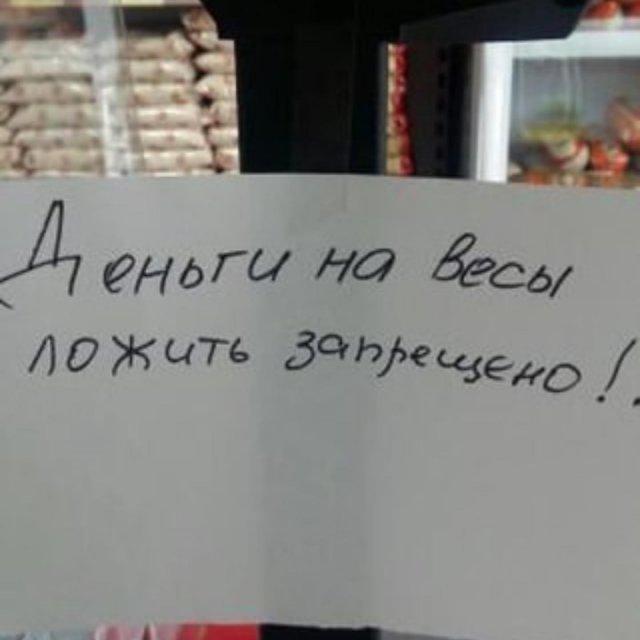 Деньги на весы
ложить запрещено!!